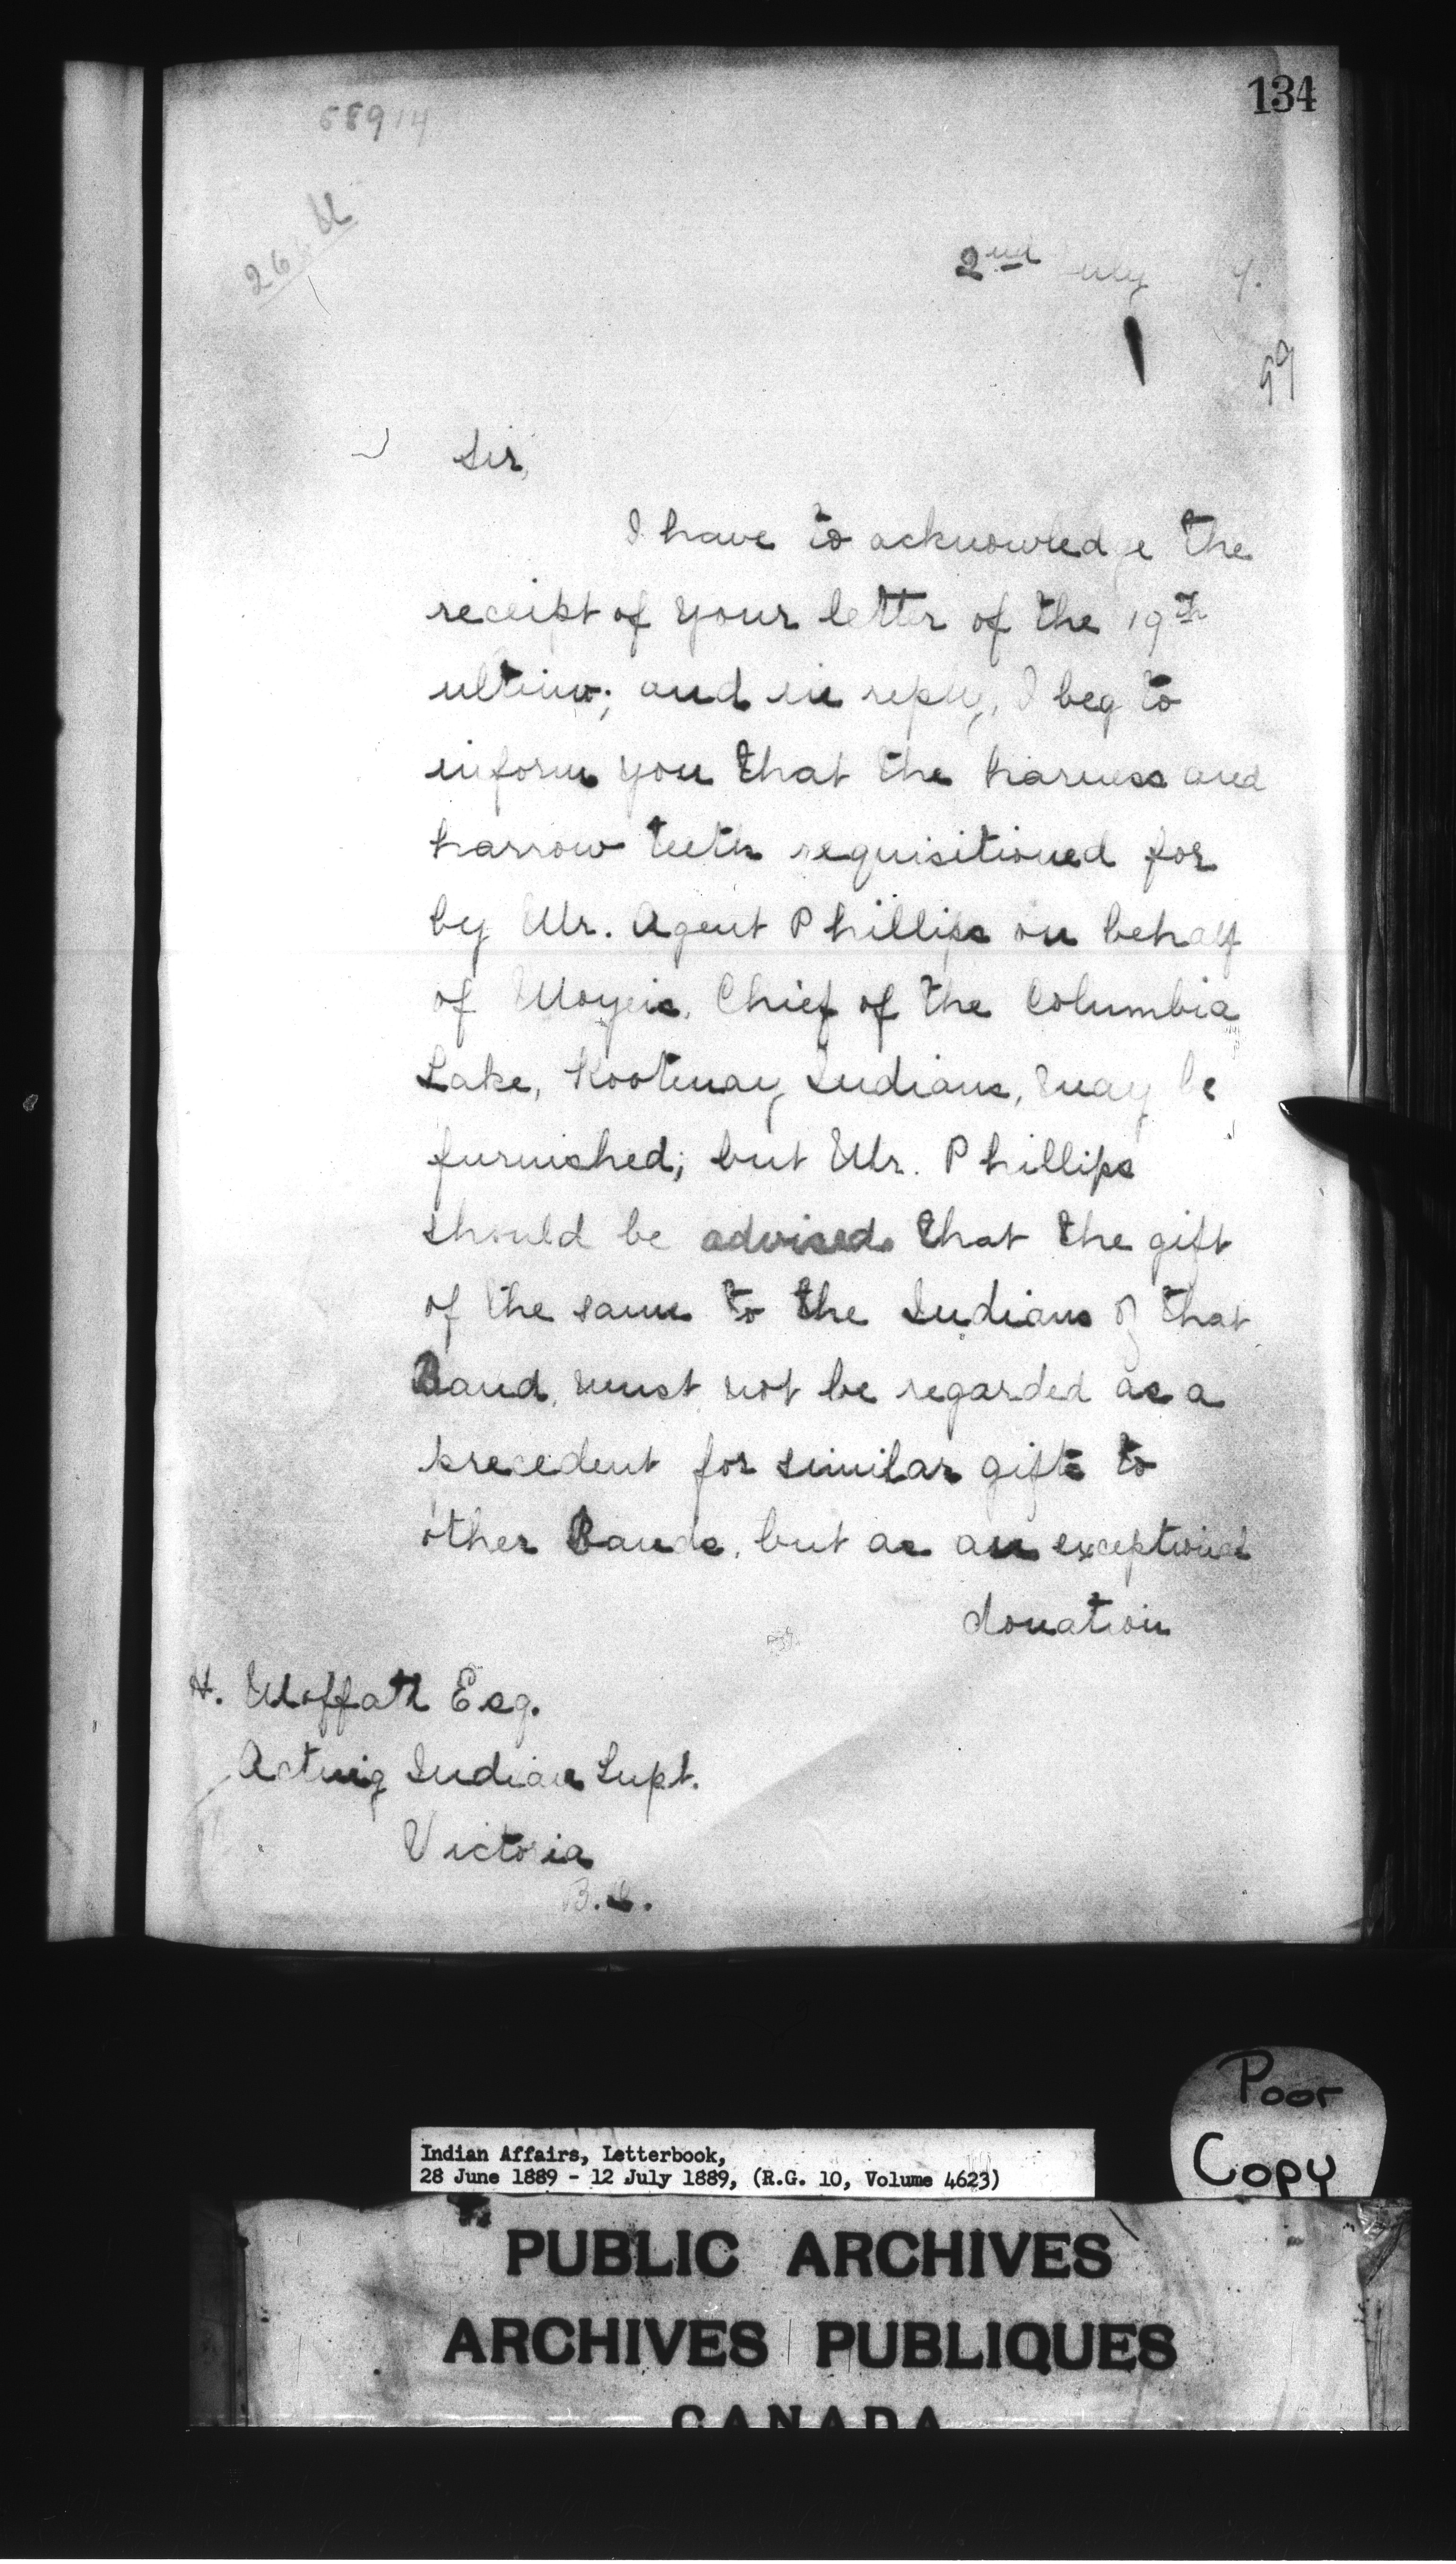 134
58914
2nd July
Sir,
I have to acknowledge the
receipt of your letter of the 19th
ultimo; and in reply, I beg to
inform you that the harness and
harrow teeth requisitioned for
by Mr. Agent Phillips on behalf
of Moyeis, Chief of the Columbia
Lake, Kootenay Indians, may be
furnished; but Mr. Phillips
should be advised that the gift
of the same to the Indians of that
Band, must not be regarded as a
precedent for similar gifts to
other Bands, but as an exceptional
donation
H. Moffatt Esq.
Acting Indian Supt.
Victoria
B.C.
Poor
Copy
Indian Affairs, Letterbook,
28 June 1889 - 12 July 1889, (R.G. 10, Volume 4623)
PUBLIC ARCHIVES
ARCHIVES PUBLIQUES
CANADA